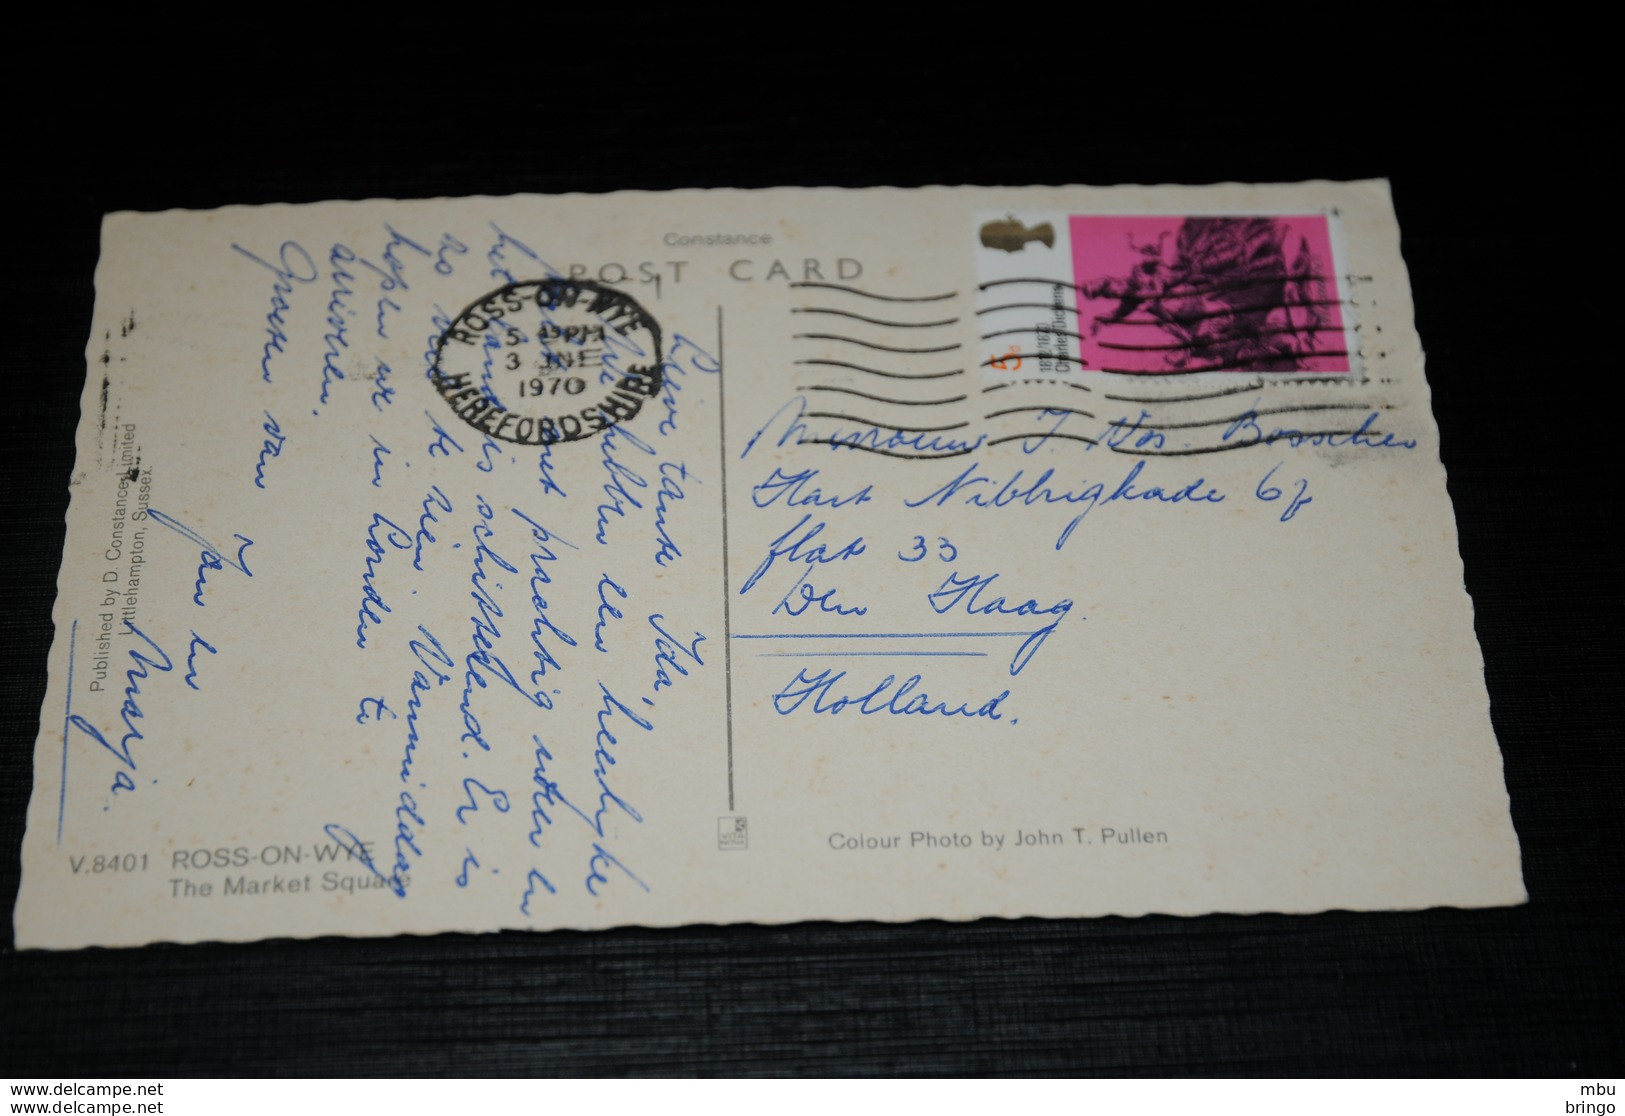 Constance
POST CARD
ROSS-ON-WYE
5 PM
3 JNE
1970
HEREFORDSHIRE
5d
1812/1870
Charles Dickens
Lieve tante Ida,
We hebben een heerlijke
met prachtig weer en
het land is schitterend. Er is
zo veel te zien. Vanmiddag
hopen we in Londen te
arriveren.
Groeten van
Jan en
Marja.
Mevrouw J. Vos-Bosscher
Hart Nibbrigkade 67
flat 33
Den Haag
Holland.
Published by D. Constance Limited
Littlehampton, Sussex.
V.8401 ROSS-ON-WYE
The Market Square
Colour Photo by John T. Pullen
www.delcampe.net
www.delcampe.net
mbu
bringo